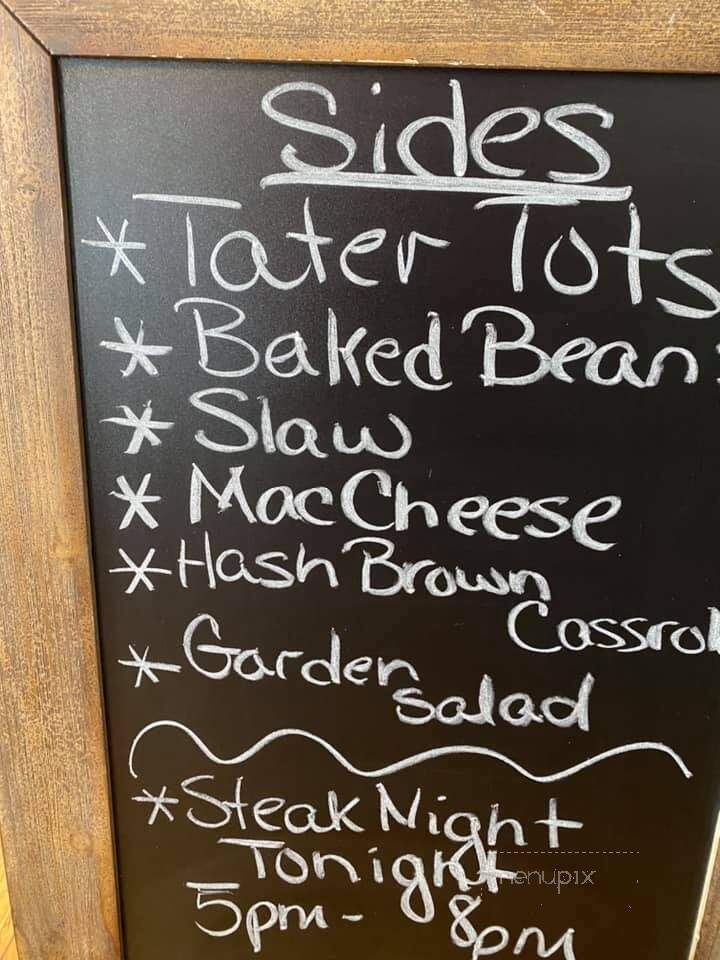 Sides
* Tater Tots
* Baked Beans
* Slaw
* Mac Cheese
* Hash Brown
Cassrol
* Garden
Salad
* Steak Night
Tonight
menupix
5pm - 8pm